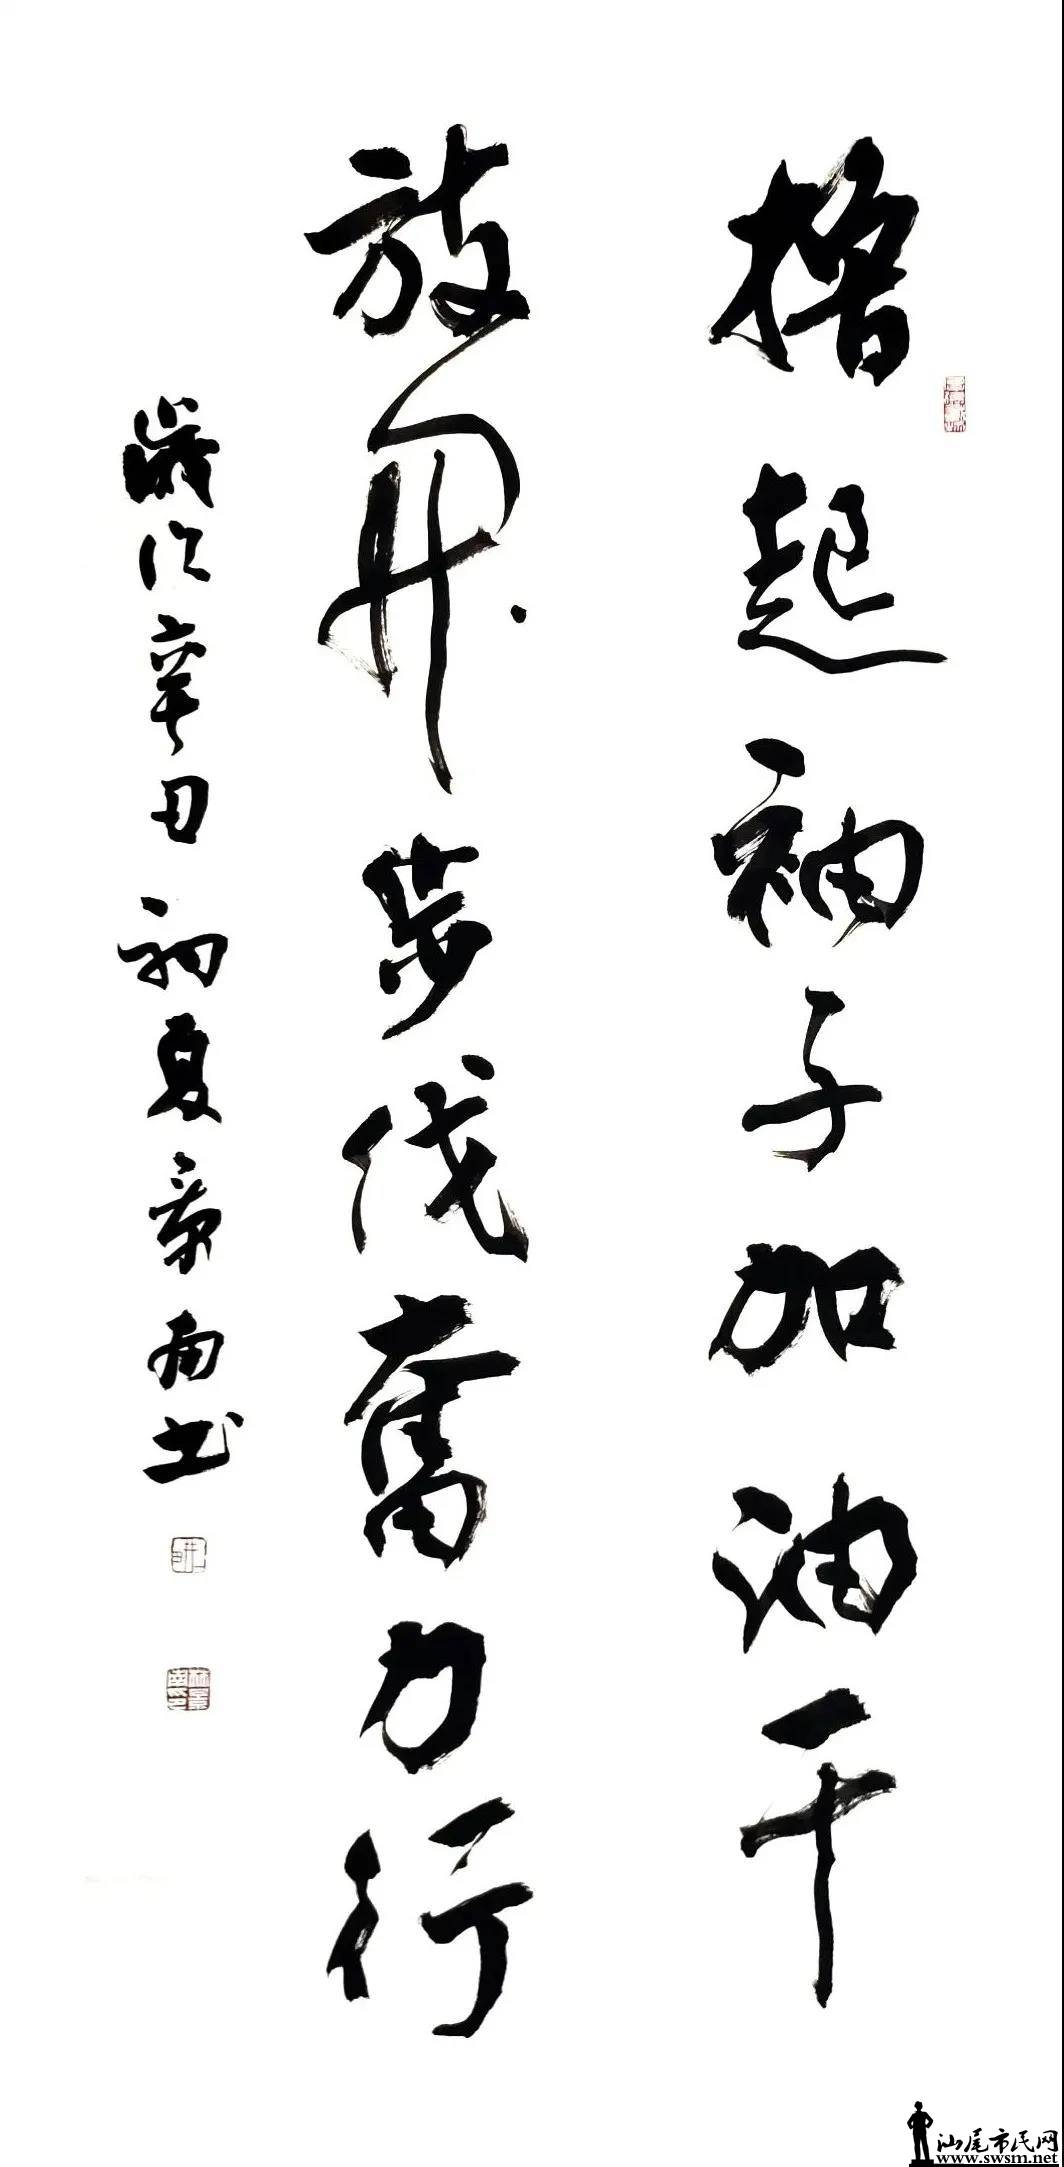 撸起袖子加油干
放开步伐奋力行
岁次辛丑初夏景南书
林景南印
汕尾市民网
www.swsm.net